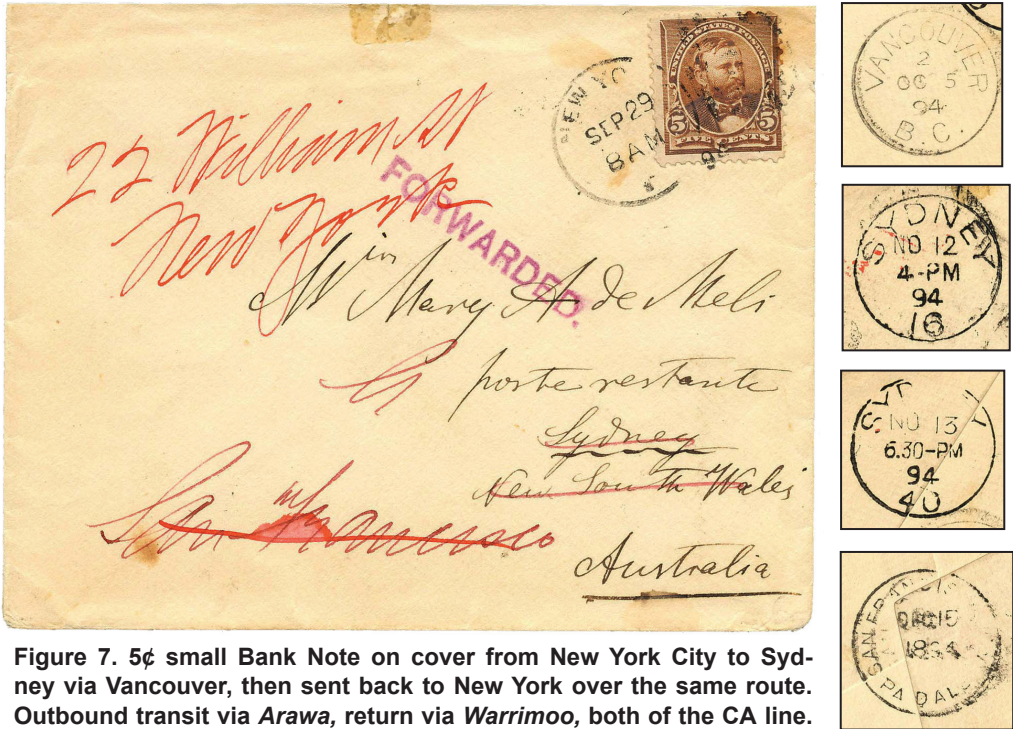 22 William St
New York
FORWARDED.
NEW YO
SEP 29
8 AM
94
UNITED STATES POSTAGE
5 5
FIVE CENTS
Mrs Mary A de Meli
poste restante
Sydney
New South Wales
Australia
San Francisco
VANCOUVER
2
OC 5
94
B.C.
SYDNEY
NO 12
4-PM
94
16
SY Y
NO 13
6.30-PM
94
40
SAN FRANCIS
DEC 15
1894
PAID ALL
Figure 7. 5¢ small Bank Note on cover from New York City to Syd-
ney via Vancouver, then sent back to New York over the same route.
Outbound transit via Arawa, return via Warrimoo, both of the CA line.